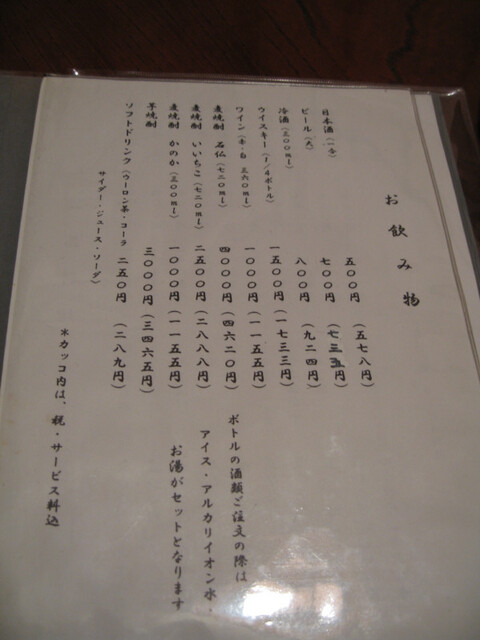 お飲み物
日本酒(一合) 五〇〇円 (五七八円)
ビール(大) 七〇〇円 (七三五円)
冷酒(三〇〇ml) 八〇〇円 (九二四円)
ウイスキー(1/4ボトル) 一五〇〇円 (一七三三円)
ワイン(赤・白 三六〇ml) 一〇〇〇円 (一一五五円)
麦焼酎 石仏(七二〇ml) 四〇〇〇円 (四六二〇円)
麦焼酎 いいちこ(七二〇ml) 二五〇〇円 (二八八八円)
麦焼酎 かのか(三〇〇ml) 一〇〇〇円 (一一五五円)
芋焼酎 三〇〇〇円 (三四六五円)
ソフトドリンク(ウーロン茶・コーラ
サイダー・ジュース・ソーダ) 二五〇円 (二八九円)
ボトルの酒類ご注文の際は
アイス・アルカリイオン水・
お湯がセットとなります
※カッコ内は、税・サービス料込